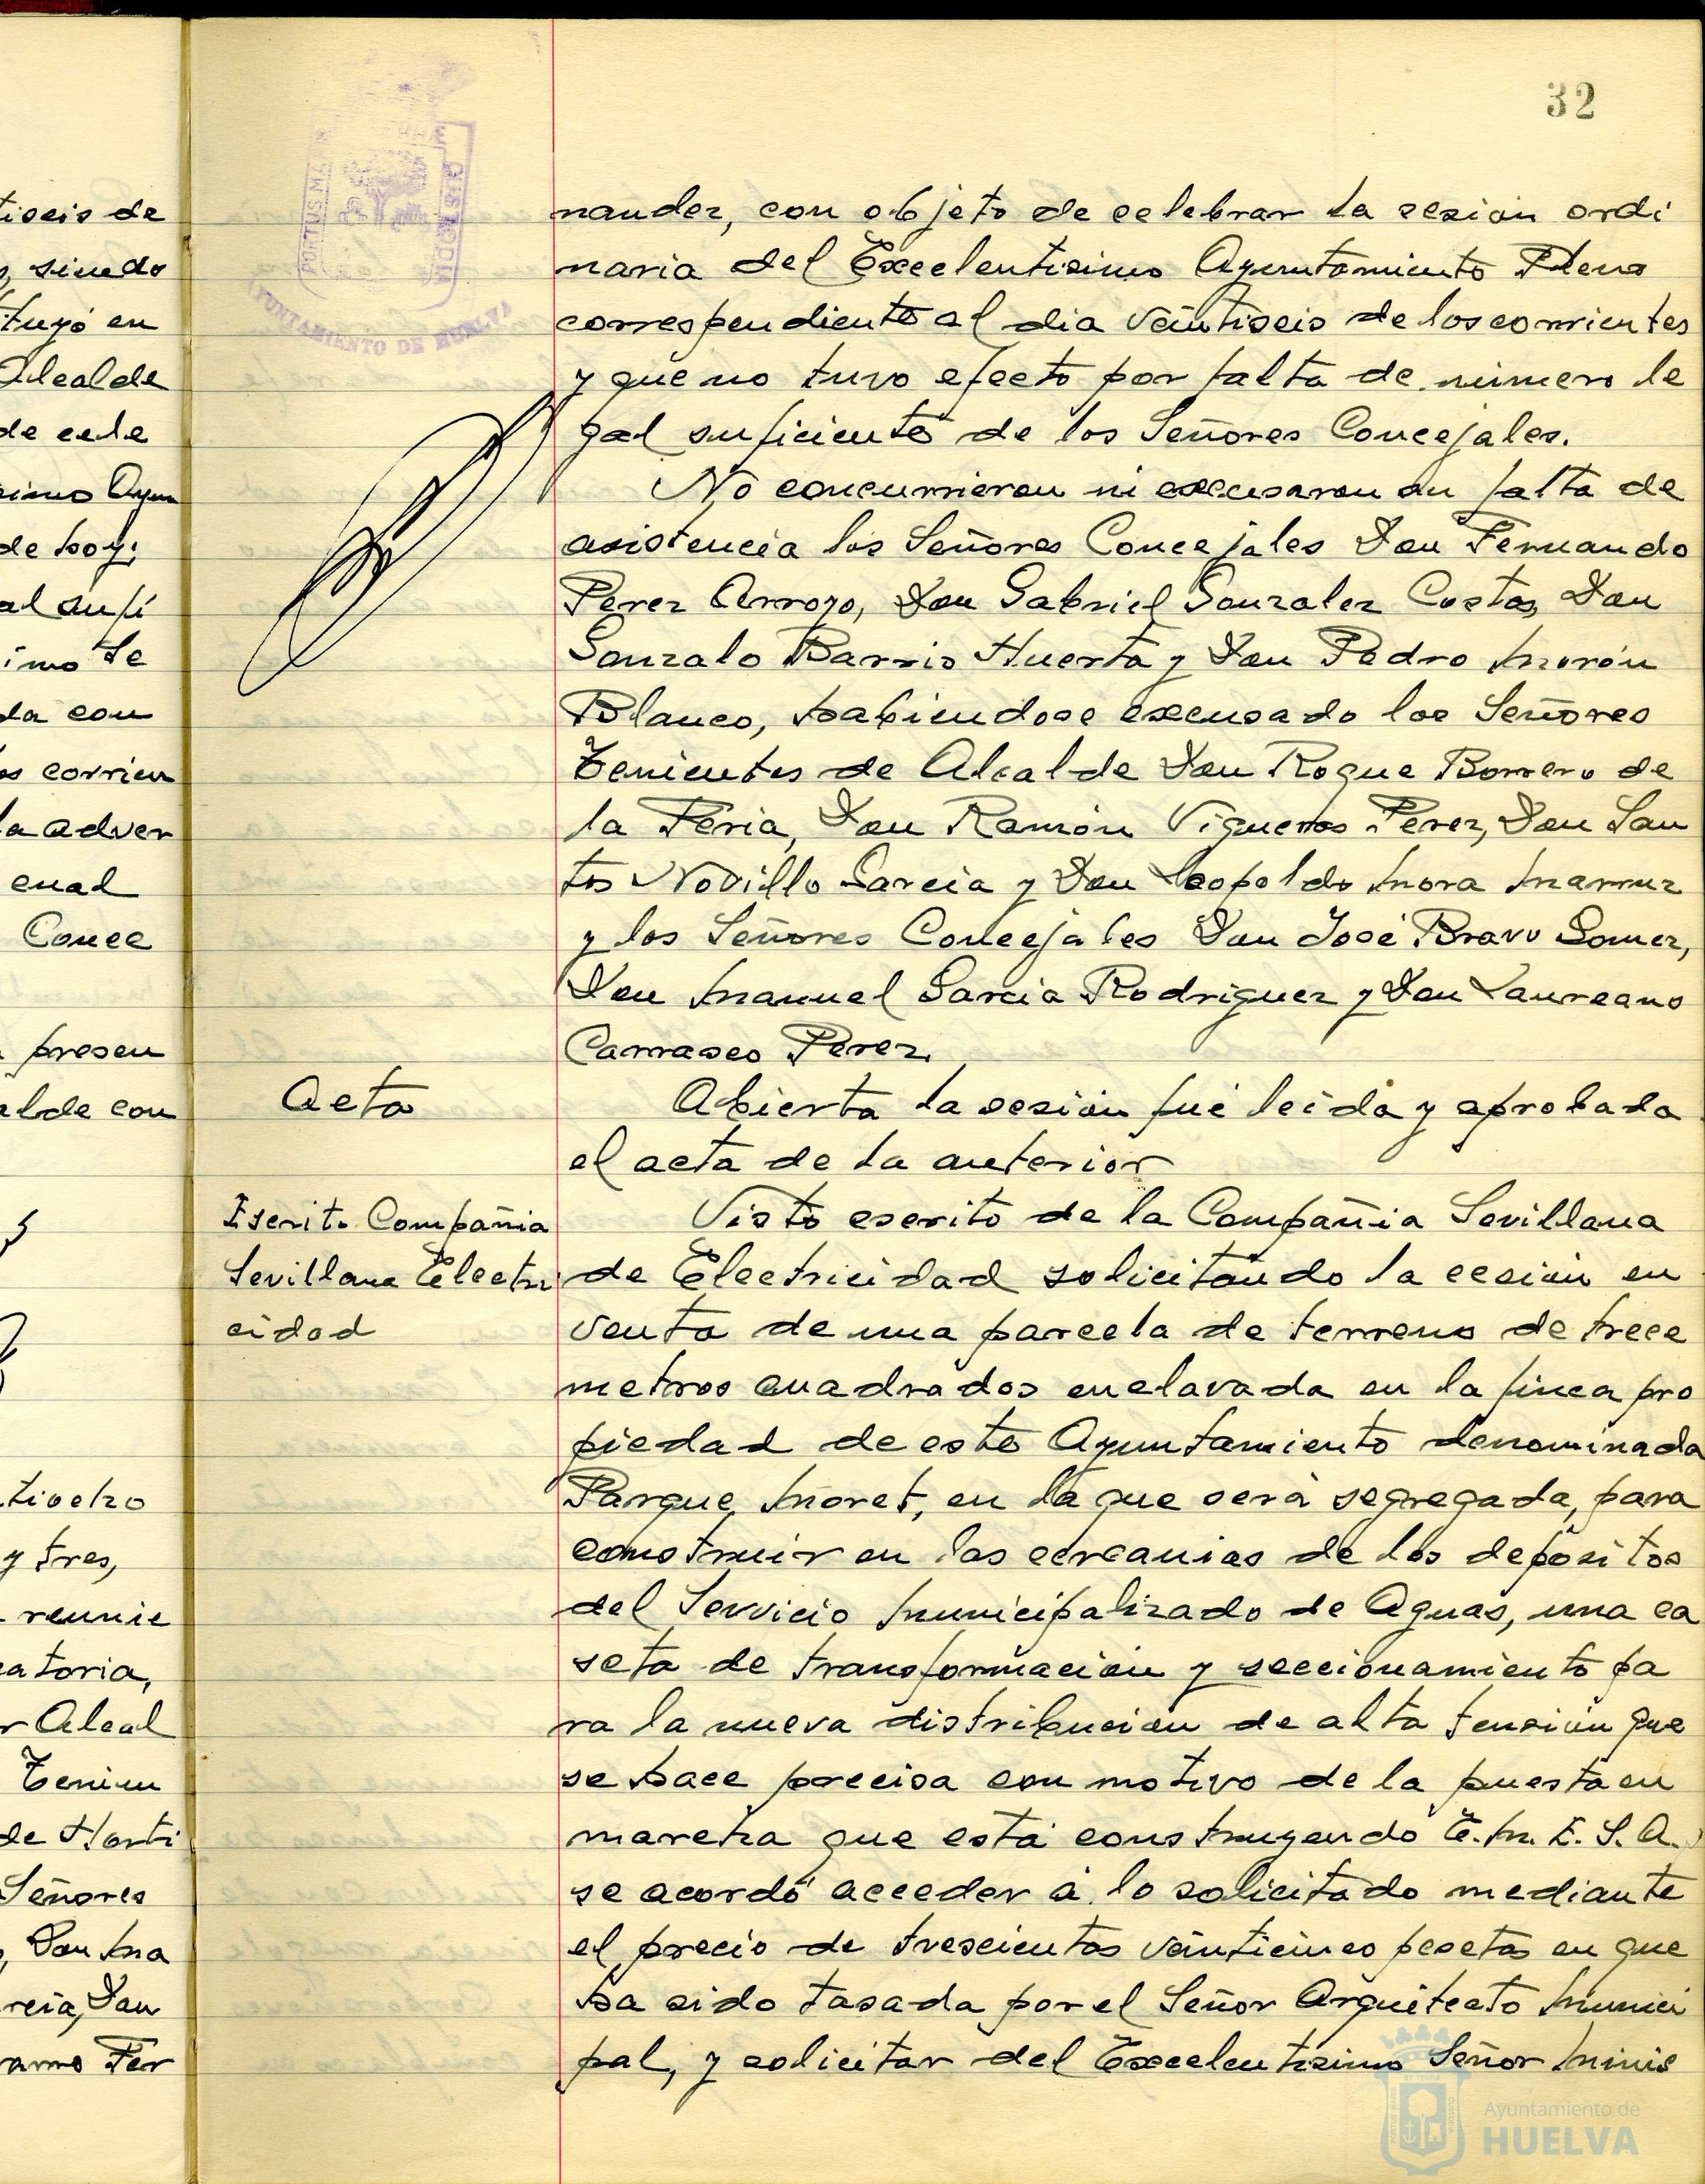 32
nandez, con objeto de celebrar la sesión ordi
naria del Excelentisimo Ayuntamiento Pleno
correspondiente al dia veintiseis de los corrientes
y que no tuvo efecto por falta de número le
gal suficiente de los Señores Concejales.
No concurrieron ni excusaron su falta de
asistencia los Señores Concejales Don Fernando
Perez Arroyo, Don Gabriel Gonzalez Costas, Don
Gonzalo Barrio Huerta y Don Pedro Morón
Blanco, habiendose excusado los Señores
Tenientes de Alcalde Don Roque Borrero de
la Feria, Don Ramón Vigueras Perez, Don San
tos Novillo Garcia y Don Leopoldo Mora
y los Señores Concejales Don José Bravo Gomez,
Don Manuel Garcia Rodriguez y Don Laureano
Carrasco Perez.
Acta
Abierta la sesión fué leida y aprobada
el acta de la anterior
Escrito Compañia
Sevillana Electri
cidad
Visto escrito de la Compañia Sevillana
de Electricidad solicitando la cesión en
venta de una parcela de terreno de trece
metros cuadrados enclavada en la finca pro
piedad de este Ayuntamiento denominada
Parque Moret, en la que será segregada, para
construir en las cercanias de los depósitos
del Servicio Municipalizado de Aguas, una ca
seta de transformación y seccionamiento pa
ra la nueva distribución de alta tensión que
se hace precisa con motivo de la puesta en
marcha que está construyendo E.M.E.S.A.,
se acordó acceder á lo solicitado mediante
el precio de trescientas veinticinco pesetas en que
ha sido tasada por el Señor Arquitecto Munici
pal, y solicitar del Excelentisimo Señor Minis
tiseis de
siendo
tuyó en
Alcalde
de cele
simo Ayun
de hoy;
al sufi
imo Se
da con
os corrien
la adver
cual
Conce
presen
alde con
tiocho
y tres,
reunie
catoria,
r Alcal
Tenien
de Horti
Señores
Don Ma
rcia, Don
arro Fer
PORTUS MA
CUSTODIA
AYUNTAMIENTO DE HUELVA
Ayuntamiento de
HUELVA